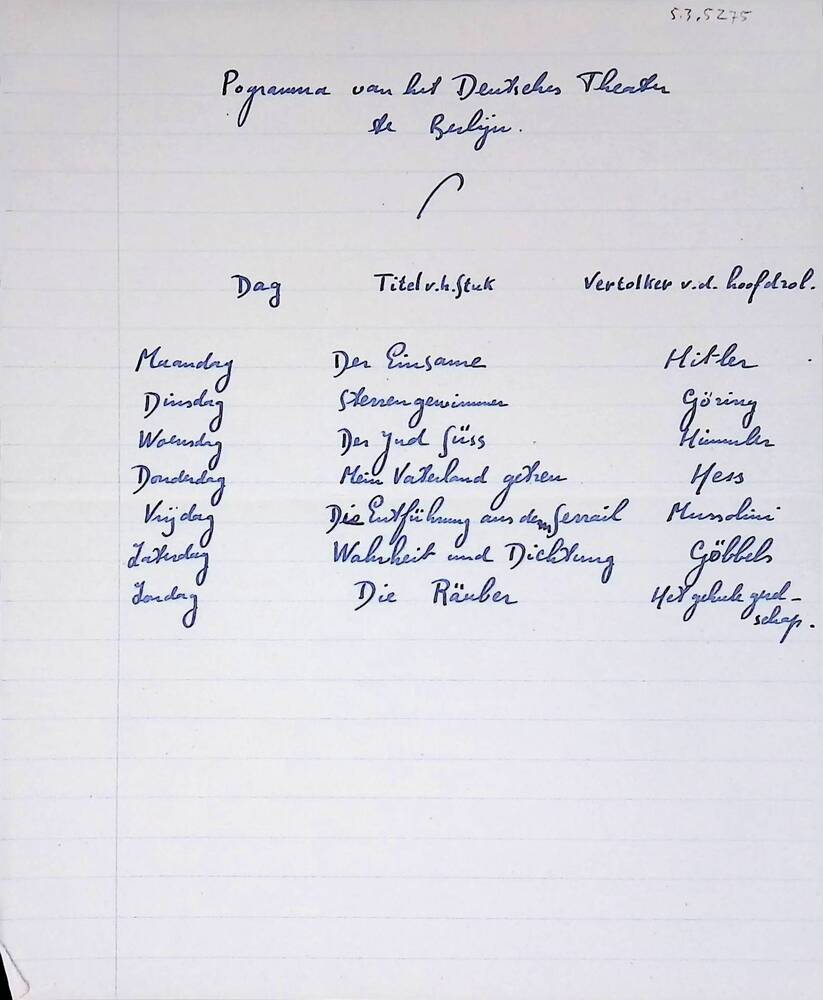 5.3.5275
Pogramma van het Deutsches Theater
te Berlijn.
Dag Titel v.h. Stuk Vertolker v.d. hoofdrol.
Maandag Der Einsame Hitler
Dinsdag Sterrengewimmer Göring
Woensdag Der Jud Süss Himmler
Donderdag Mein Vaterland getreu Hess
Vrijdag Die Entführung aus dem Serrail Mussolini
Zaterdag Wahrheit und Dichtung Göbbels
Zondag Die Räuber Het geheele gezel-
schap.